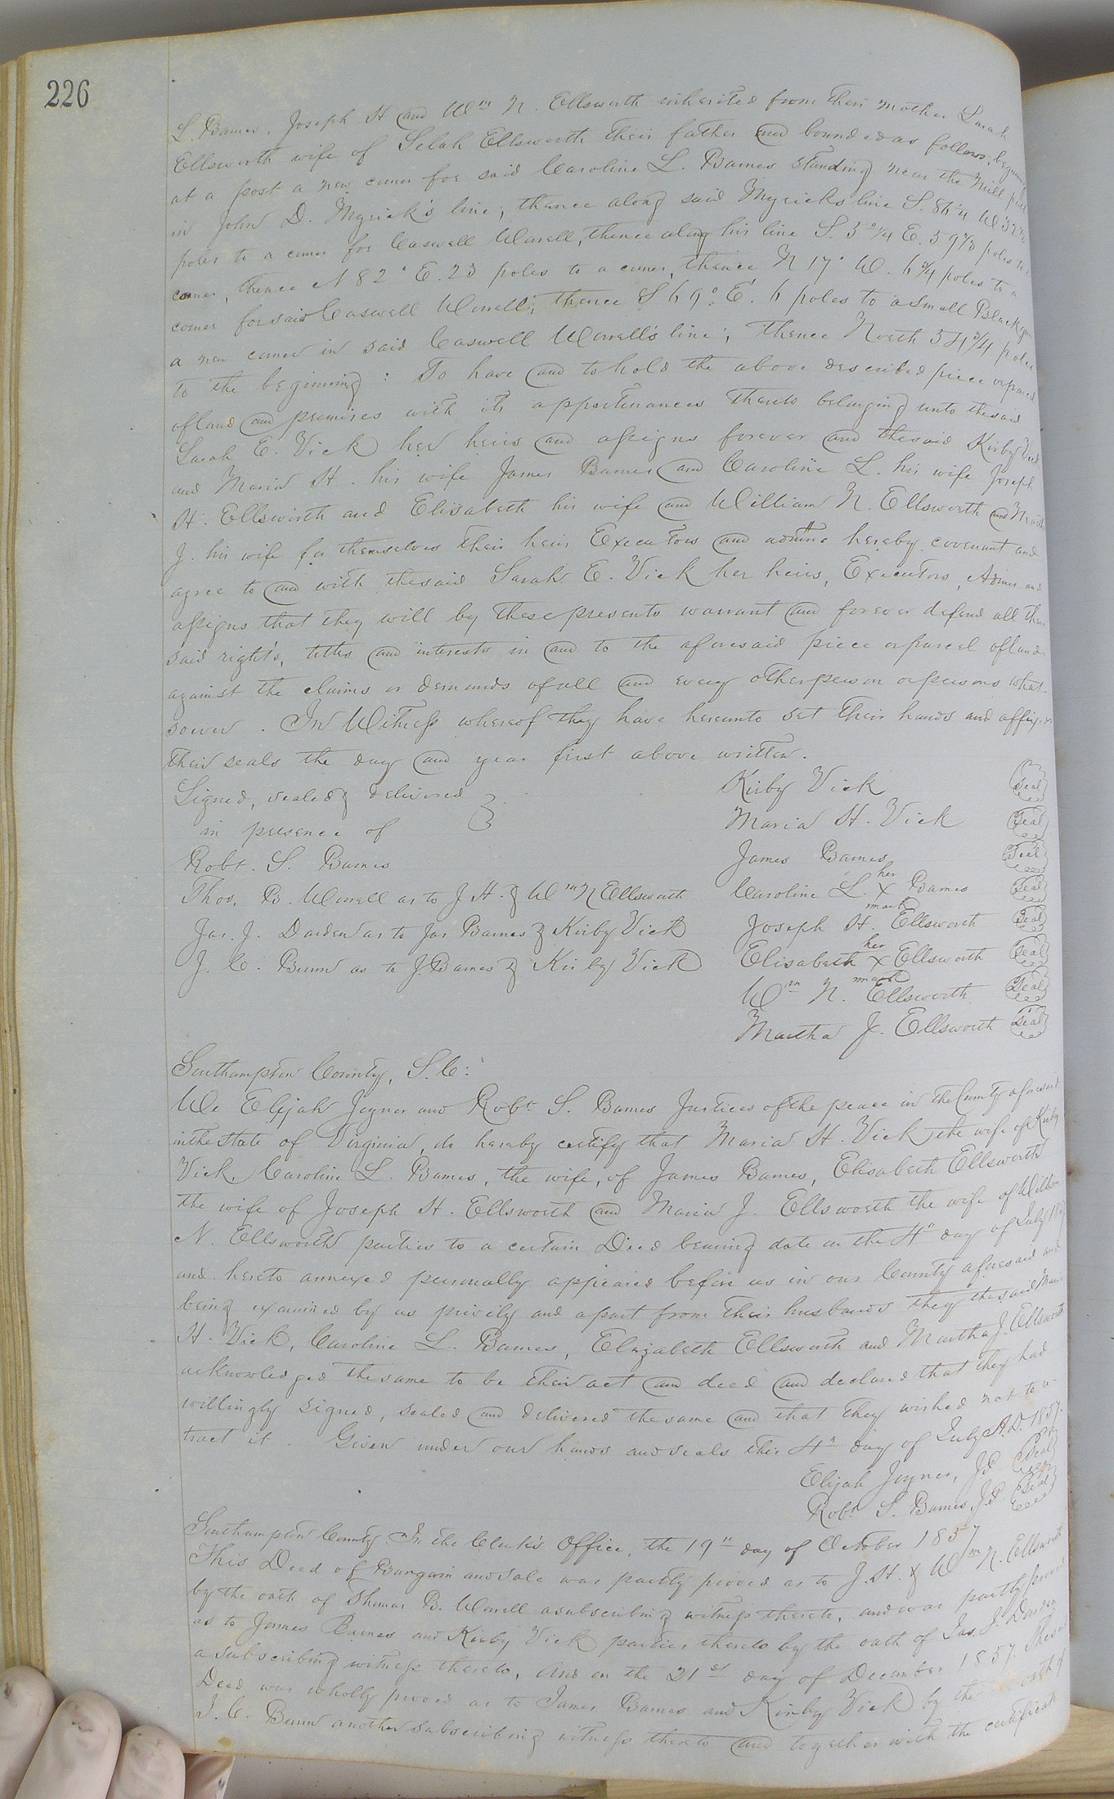 226
L. Barnes, Joseph H and Wm N. Ellsworth inherited from their mother Sarah
Ellsworth wife of Selah Ellsworth their father and bounded as follows, beginning
at a post a new corner for said Caroline L. Barnes standing near the Mill path
in John D. Myrick's line, thence along said Myricks line S. 86¼ W
poles to a corner for Caswell Worrell, thence along his line S. 3¾ E. 59⅗ poles to a
corner, thence N 82° E. 23 poles to a corner, thence N 17° W. 6¾ poles to a
corner for said Caswell Worrell; thence S 69° E. 6 poles to a small Black gum
a new corner in said Caswell Worrell's line; thence North 54¾ poles
to the beginning: To have and to hold the above described piece or parcel
of land and premises with its appurtenances thereto belonging unto the said
Sarah E. Vick her heirs and assigns forever and the said Kirby Vick
and Maria H. his wife James Barnes and Caroline L. his wife Joseph
H. Ellsworth and Elisabeth his wife and William N. Ellsworth and
J. his wife for themselves their heirs Executors and admrs hereby covenant and
agree to and with the said Sarah E. Vick her heirs, Executors, Admrs and
assigns that they will by these presents warrant and forever defend all their
said rights, titles and interests in and to the aforesaid piece or parcel of land
against the claims or demands of all and every other person or persons what-
soever. In Witness whereof they have hereunto set their hands and affixed
their seals the day and year first above written.
Signed, sealed & delivered
in presence of
Robt. S. Barnes
Thos. B. Worrell as to J. H. & Wm N Ellsworth
Jas. J. Darden as to Jas Barnes & Kirby Vick
J. C. Bunn as to J. Barnes & Kirby Vick
Kirby Vick Seal
Maria H. Vick Seal
James Barnes Seal
Caroline L. her x mark Barnes Seal
Joseph H. Ellsworth Seal
Elisabeth her x mark Ellsworth Seal
Wm N. Ellsworth Seal
Martha J. Ellsworth Seal
Southampton County, S.C:
We Elijah Joyner and Robt S. Barnes Justices of the peace in the County aforesaid
in the State of Virginia, do hereby certify that Maria H. Vick the wife of Kirby
Vick, Caroline L. Barnes, the wife, of James Barnes, Elisabeth Ellsworth
the wife of Joseph H. Ellsworth and Maria J. Ellsworth the wife of William
N. Ellsworth parties to a certain Deed bearing date on the 4th day of July
and hereto annexed personally appeared before us in our County aforesaid and
being examined by us privily and apart from their husbands they the said Maria
H. Vick, Caroline L. Barnes, Elizabeth Ellsworth and Martha J. Ellsworth
acknowledged the same to be their act and deed and declared that they had
willingly signed, sealed and delivered the same and that they wished not to re-
tract it. Given under our hands and seals this 4th day of July A.D. 1857.
Elijah Joyner, JP Seal
Robt S. Barnes JP Seal
Southampton County In the Clerk's Office, the 19th day of October 1857
This Deed of Bargain and sale was partly proved as to J. H. & Wm N. Ellsworth
by the oath of Thomas B. Worrell a subscribing witness thereto, and was partly proved
as to James Barnes and Kirby Vick parties thereto by the oath of Jas. J. Darden
a subscribing witness thereto, And on the 21st day of December 1857. The said
Deed was wholly proved as to James Barnes and Kirby Vick by the oath of
J. C. Bunn another subscribing witness thereto and together with the certificate